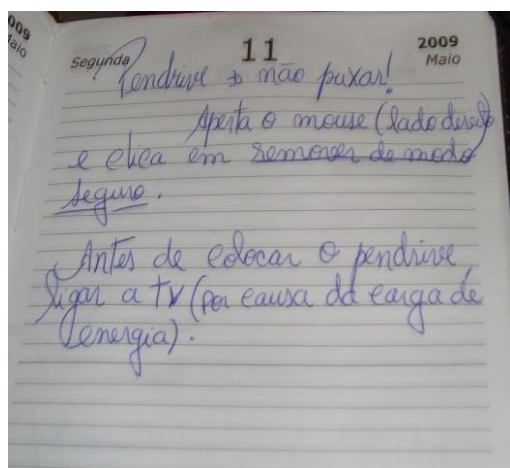 009
Maio
Segunda 11 2009
Maio
Pendrive → não puxar!
Aperta o mouse (lado direito)
e clica em remover de modo
seguro.
Antes de colocar o pendrive,
ligar a TV (por causa da carga de
energia).